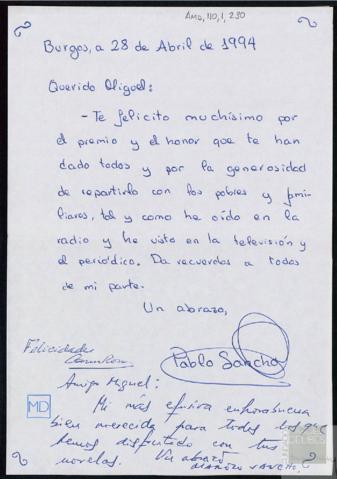 AMD, 110, 1, 230
Burgos, a 28 de Abril de 1994
Querido Miguel:
- Te felicito muchísimo por
el premio y el honor que te han
dado todos y por la generosidad
de repartirlo con los pobres y fami-
liares, tal y como he oído en la
radio y he visto en la televisión y
el periódico. Da recuerdos a todos
de mi parte.
Un abrazo,
Pablo Sancho
Felicidades
Amigo Miguel:
MD
Mi más efusiva enhorabuena
bien merecida para todos los que
hemos disfrutado con tus
novelas. Un abrazo